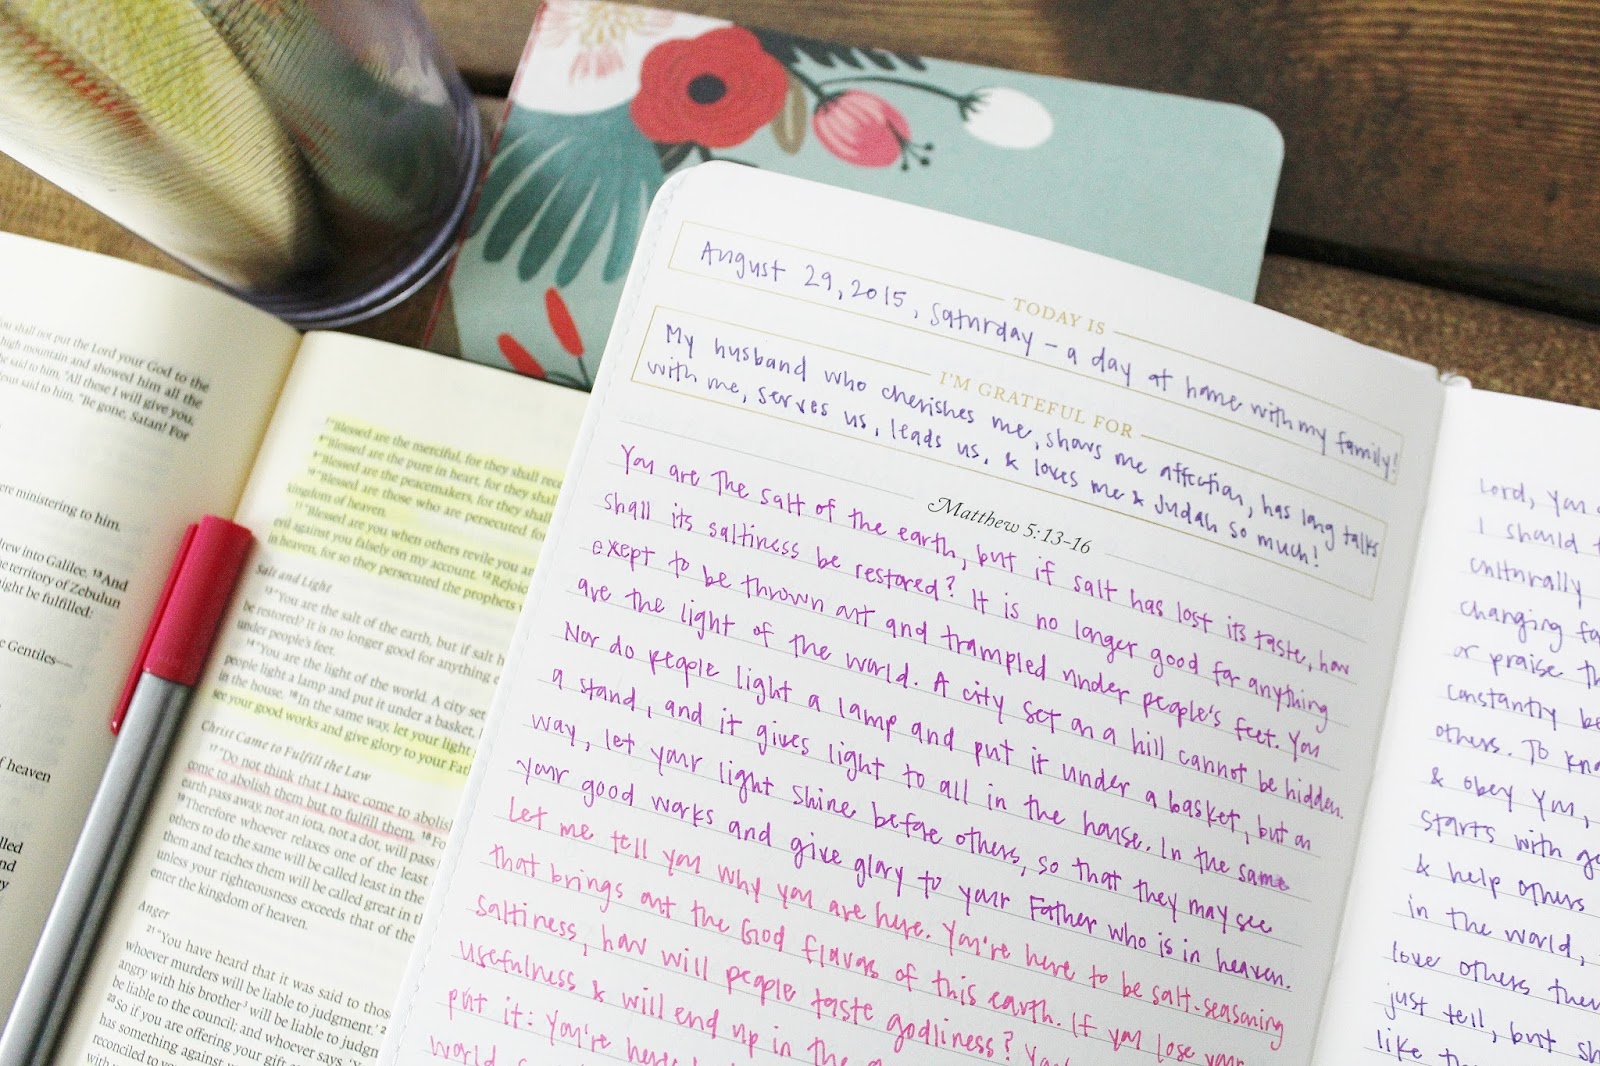 You shall not put the Lord your God to the
high mountain and showed him all the
he said to him, "All these I will give you,
said to him, "Be gone, Satan! For
were ministering to him.
into Galilee. 13And
the territory of Zebulun
might be fulfilled:
Gentiles—
of heaven
7"Blessed are the merciful, for they shall
8"Blessed are the pure in heart, for they shall
9"Blessed are the peacemakers, for they shall
10"Blessed are those who are persecuted for
kingdom of heaven.
11"Blessed are you when others revile you and
evil against you falsely on my account. 12Rejoice
in heaven, for so they persecuted the prophets
Salt and Light
13"You are the salt of the earth, but if salt
be restored? It is no longer good for anything
under people's feet.
14"You are the light of the world. A city set
people light a lamp and put it under a basket,
in the house. 16In the same way, let your light
see your good works and give glory to your
Christ Came to Fulfill the Law
17"Do not think that I have come to abolish
come to abolish them but to fulfill them. 18
earth pass away, not an iota, not a dot, will pass
19Therefore whoever relaxes one of the least
others to do the same will be called least in the
them and teaches them will be called great in
unless your righteousness exceeds that of the
enter the kingdom of heaven.
Anger
21"You have heard that it was said to those
whoever murders will be liable to judgment.'
angry with his brother will be liable to
be liable to the council; and whoever says,
23So if you are offering your gift
has something against
reconciled to your
TODAY IS
August 29, 2015, Saturday - a day at home with my family!
I'M GRATEFUL FOR
My husband who cherishes me, shows me affection, has long talks
with me, serves us, leads us, & loves me & Judah so much!
Matthew 5:13-16
You are the salt of the earth, but if salt has lost its taste, how
shall its saltiness be restored? It is no longer good for anything
exept to be thrown out and trampled under people's feet. You
are the light of the world. A city set on a hill cannot be hidden.
Nor do people light a lamp and put it under a basket, but on
a stand, and it gives light to all in the house. In the same
way, let your light shine before others, so that they may see
your good works and give glory to your Father who is in heaven.
Let me tell you why you are here. You're here to be salt-seasoning
that brings out the God flavors of this earth. If you lose your
saltiness, how will people taste godliness?
usefulness & will end up in the
put it: You're here
world
Lord, you
I should
culturally
changing
or praise
constantly
others. To
& obey You,
starts with
& help others
in the world,
love others
just tell, but
like